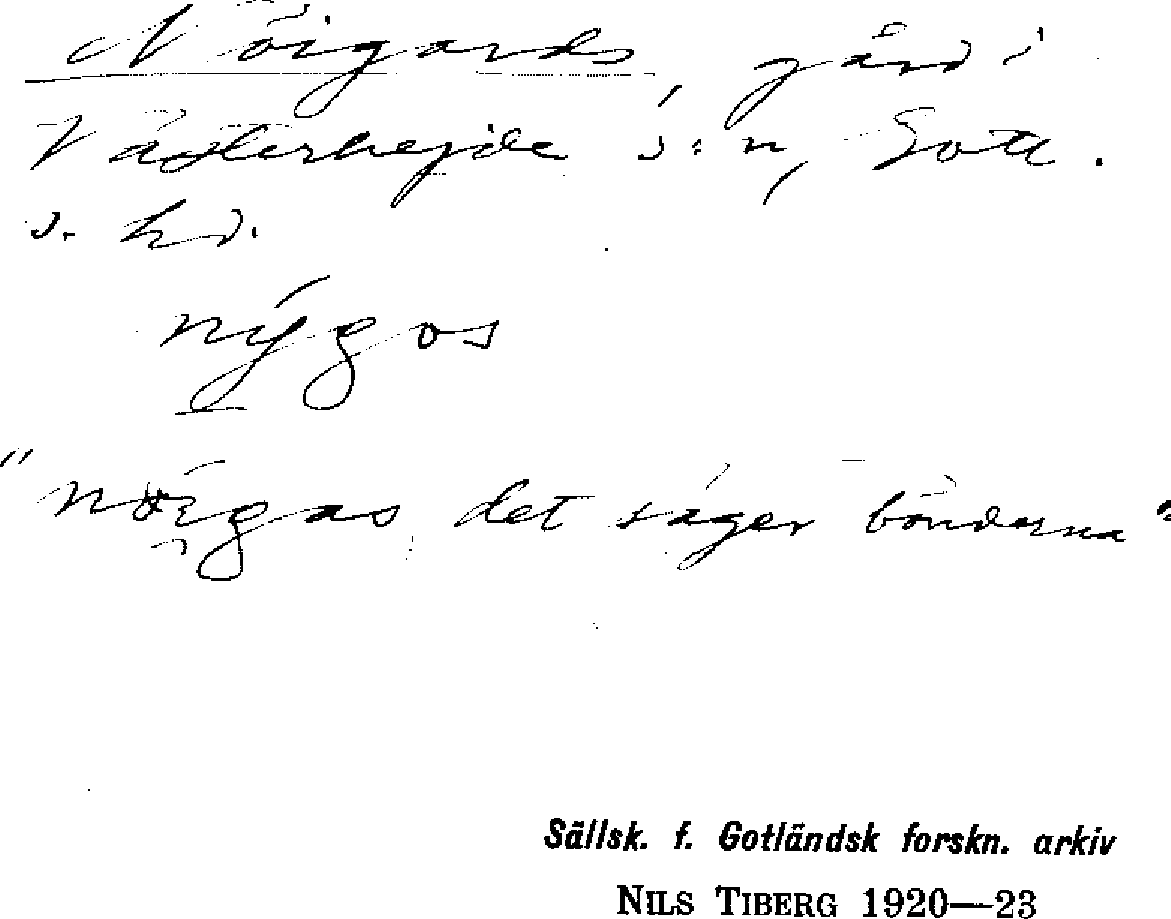 Nöigards, gård i
Västerhejde s:n, Gotl.
s. hd.
nýgos
"nöigas det säger bönderna"
Sällsk. f. Gotländsk forskn. arkiv
NILS TIBERG 1920—23